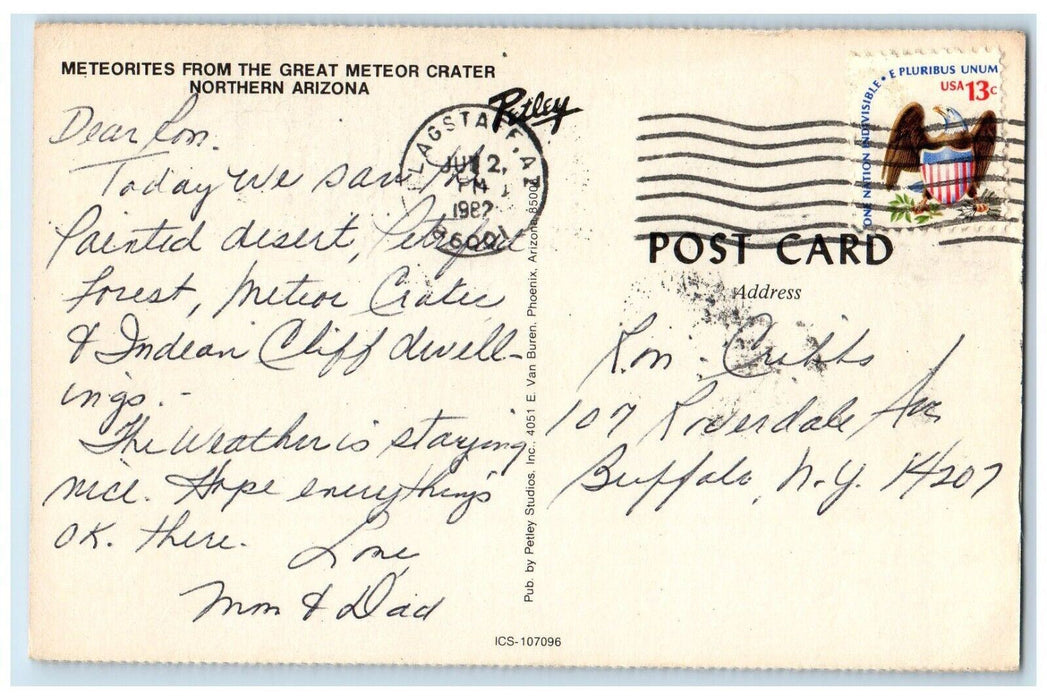 METEORITES FROM THE GREAT METEOR CRATER
NORTHERN ARIZONA
Petley
Dear Ron.
Today we saw the
Painted desert, Petrified
Forest, Meteor Crater
& Indian Cliff dwell-
ings.
The weather is staying
nice. Hope everything's
OK. there.
Love,
Mom & Dad
Pub. by Petley Studios, Inc., 4051 E. Van Buren, Phoenix, Arizona 85008
FLAGSTAFF, AZ
2,
PM
1982
86001
ONE NATION INDIVISIBLE • E PLURIBUS UNUM
USA 13c
POST CARD
Address
Ron Cribbs
107 Riverdale Ave
Buffalo, N.Y. 14207
ICS-107096